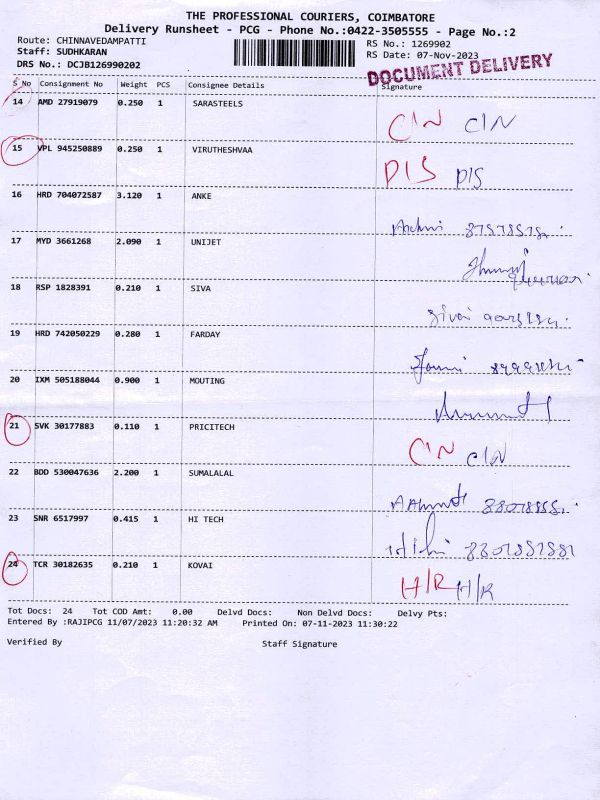 THE PROFESSIONAL COURIERS, COIMBATORE
Delivery Runsheet - PCG - Phone No.:0422-3505555 - Page No.:2
Route: CHINNAVEDAMPATTI
RS No.: 1269902
Staff: SUDHKARAN
RS Date: 07-Nov-2023
DRS No.: DCJB126990202
DOCUMENT DELIVERY
S No Consignment No Weight PCS Consignee Details Signature
14 AMD 27919079 0.250 1 SARASTEELS
CIN CIN
15 VPL 945250889 0.250 1 VIRUTHESHVAA
DIS DIS
16 HRD 704072587 3.120 1 ANKE
17 MYD 3661268 2.090 1 UNIJET
18 RSP 1828391 0.210 1 SIVA
19 HRD 742050229 0.280 1 FARDAY
20 IXM 505188044 0.900 1 MOUTING
21 SVK 30177883 0.110 1 PRICITECH
CIN CIN
22 BDD 530047636 2.200 1 SUMALALAL
23 SNR 6517997 0.415 1 HI TECH
24 TCR 30182635 0.210 1 KOVAI
H/R H/R
Tot Docs: 24 Tot COD Amt: 0.00 Delvd Docs: Non Delvd Docs: Delvy Pts:
Entered By :RAJIPCG 11/07/2023 11:20:32 AM Printed On: 07-11-2023 11:30:22
Verified By Staff Signature